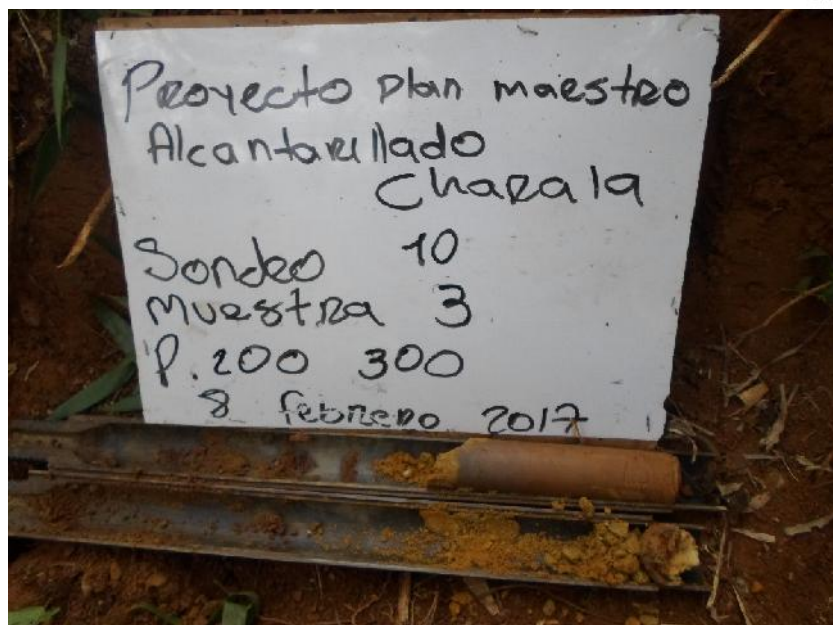 Proyecto plan maestro
Alcantarillado
Charala
Sondeo 10
muestra 3
P. 200 300
8 febrero 2017